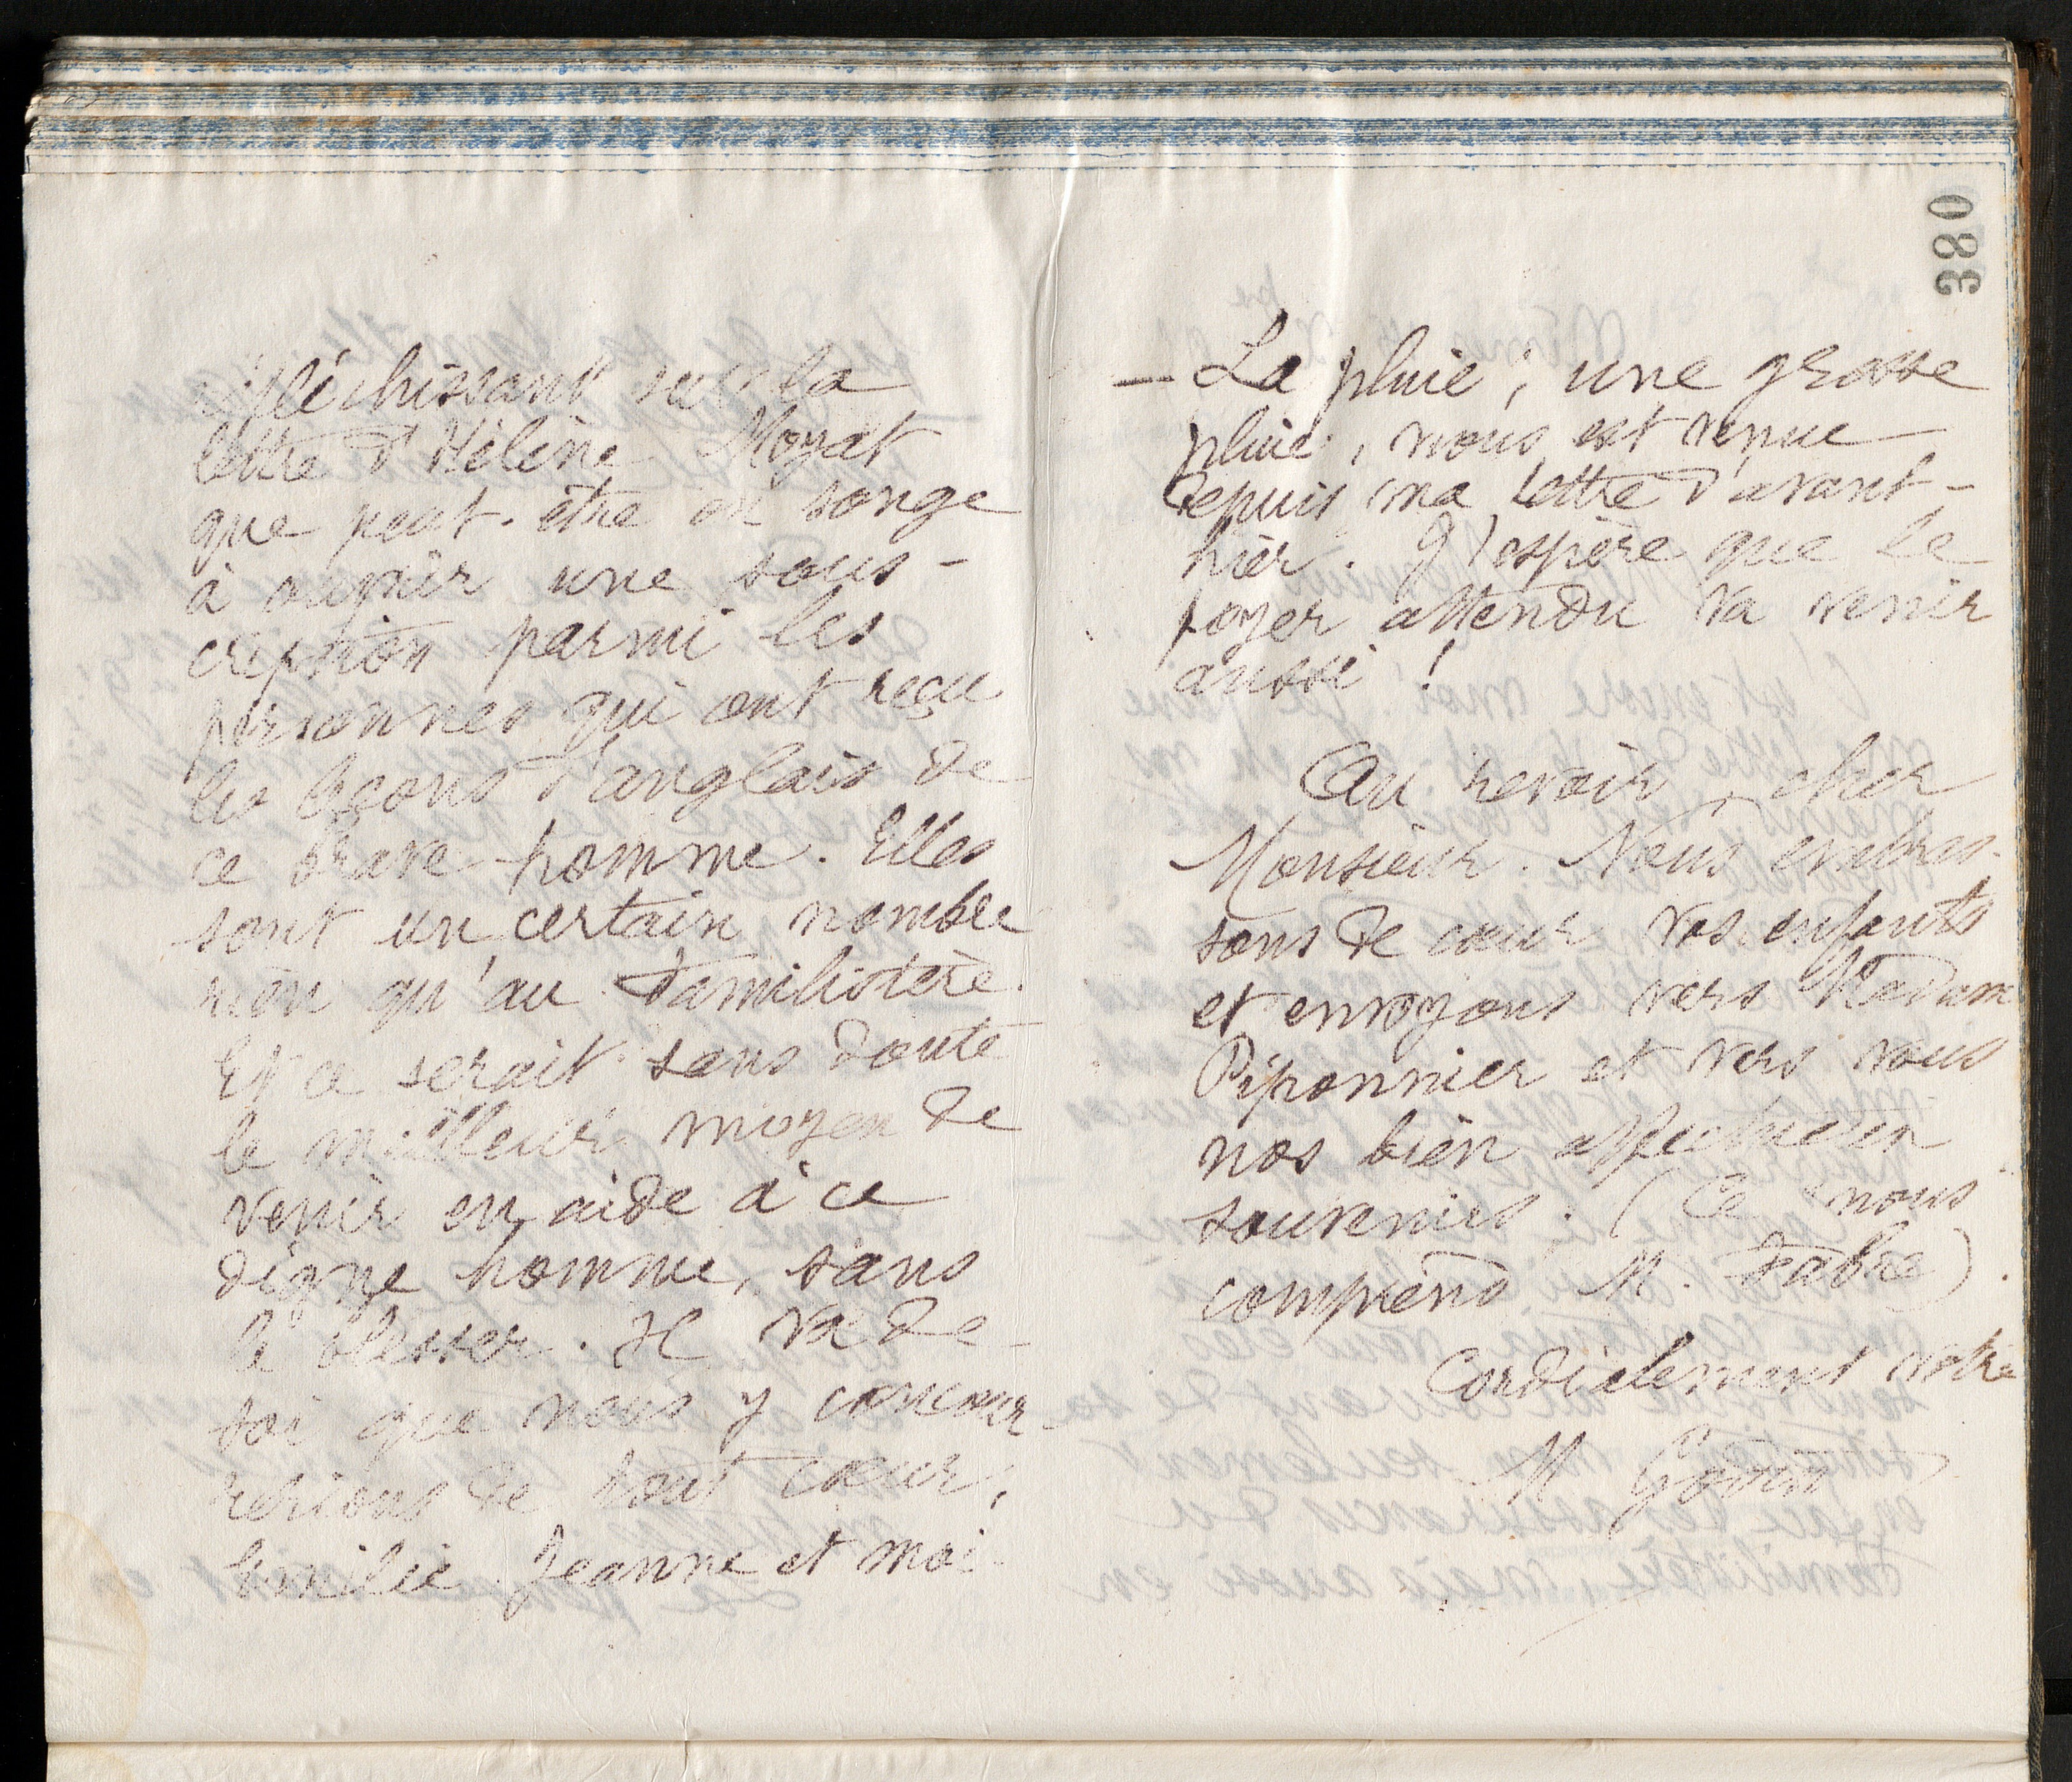 réfléchissant sur la
lettre d'Hélène Moyat
que peut-être on songe
à ouvrir une sous-
cription parmi les
personnes qui ont reçu
les leçons d'anglais de
ce brave homme. Elles
sont un certain nombre
rien qu'au Familistère.
Et ce serait sans doute
le meilleur moyen de
venir en aide à ce
digne homme, sans
le blesser. Il va de
soi que nous y concour-
rerions de tout cœur,
Emilie Jeanne et moi
380
— La pluie, une grosse
pluie, nous est venue
depuis ma lettre d'avant-
hier. J'espère que le
foyer attendu va venir
aussi !
Au revoir, cher
Monsieur. Nous embras-
sons de cœur vos enfants
et envoyons vers Madame
Piponnier et vers vous
nos bien affectueux
souvenirs. (Ce nous
comprend M. Fabre).
Cordialement votre
M Godin